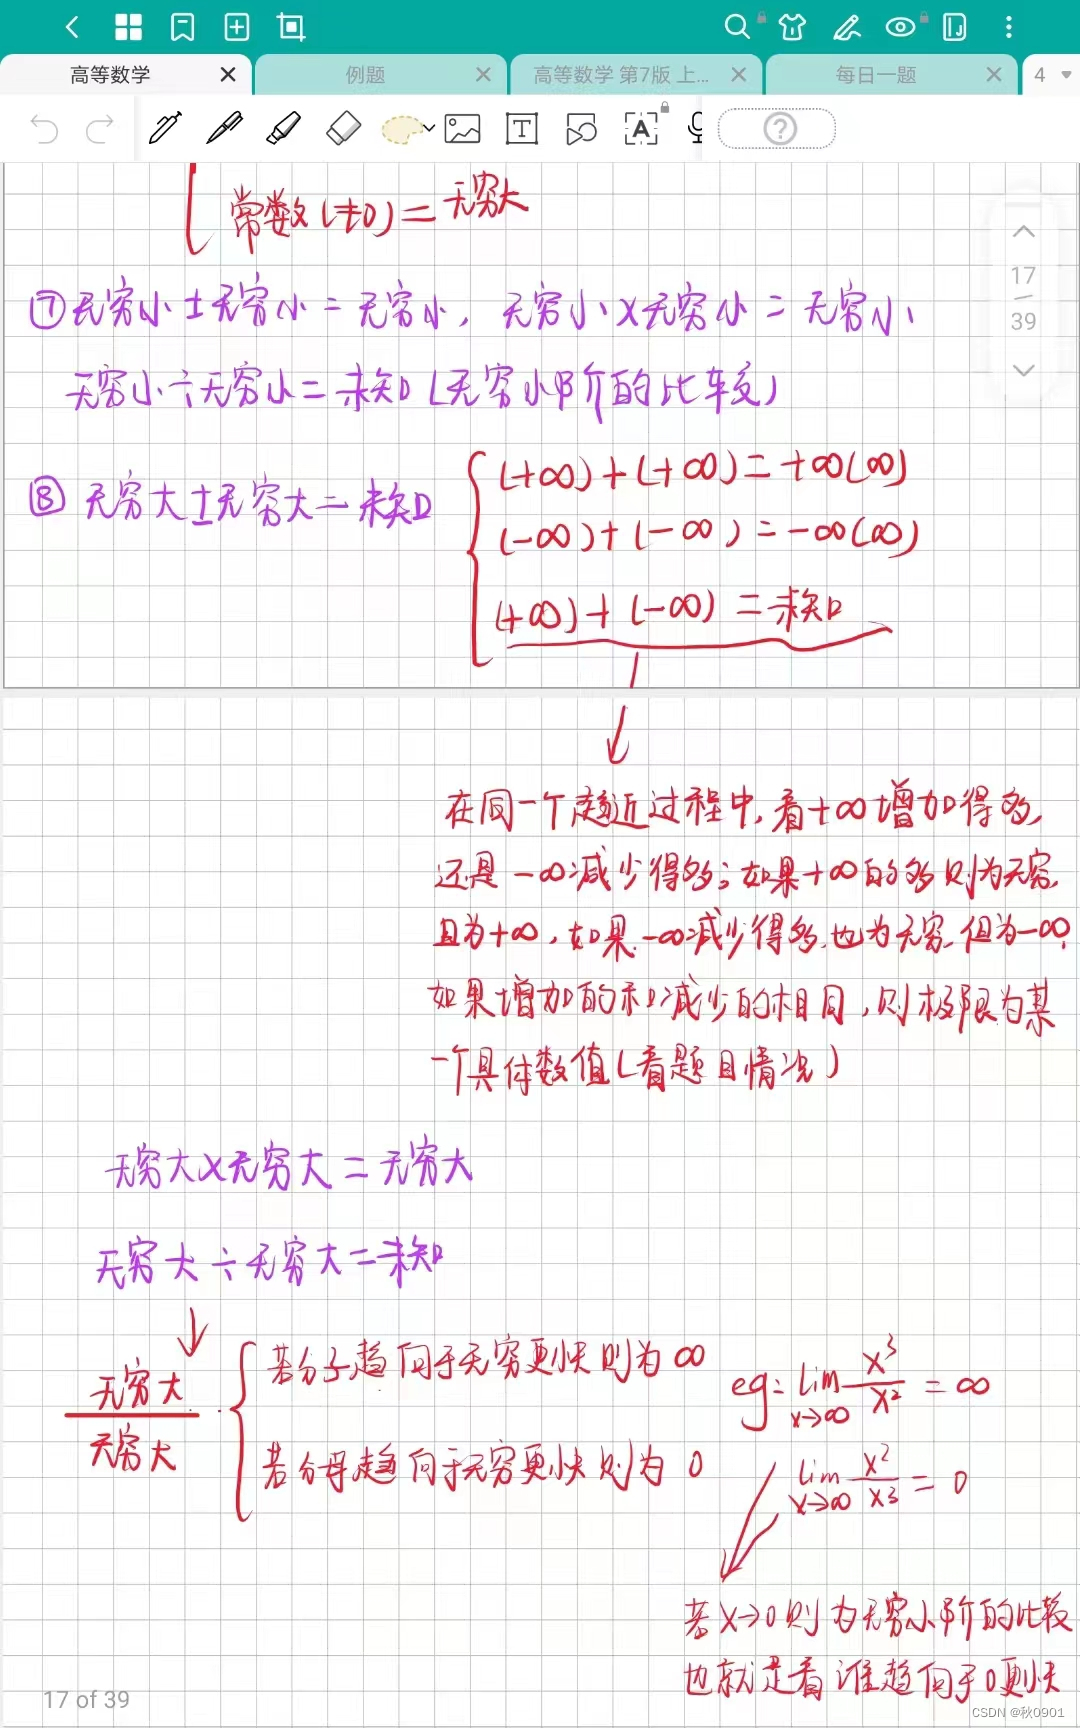 高等数学
例题
高等数学 第7版 上...
每日一题
4
常数(≠0)=无穷大
17
39
⑦无穷小±无穷小=无穷小, 无穷小×无穷小=无穷小
无穷小÷无穷小=未知(无穷小阶的比较)
⑧ 无穷大±无穷大=未知
(+∞)+(+∞)=+∞(∞)
(-∞)+(-∞)=-∞(∞)
(+∞)+(-∞)=未知
在同一个趋近过程中,看+∞增加得多,
还是-∞减少得多;如果+∞的多则为无穷,
且为+∞,如果-∞减少得多,也为无穷,但为-∞,
如果增加的和减少的相同,则极限为某
一个具体数值(看题目情况)
无穷大×无穷大=无穷大
无穷大÷无穷大=未知
无穷大/无穷大
若分子趋向于无穷更快则为∞
若分母趋向于无穷更快则为0
eg: lim x→∞ x³/x² = ∞
lim x→∞ x²/x³ = 0
若x→0则为无穷小阶的比较
也就是看谁趋向于0更快
17 of 39
CSDN @秋0901